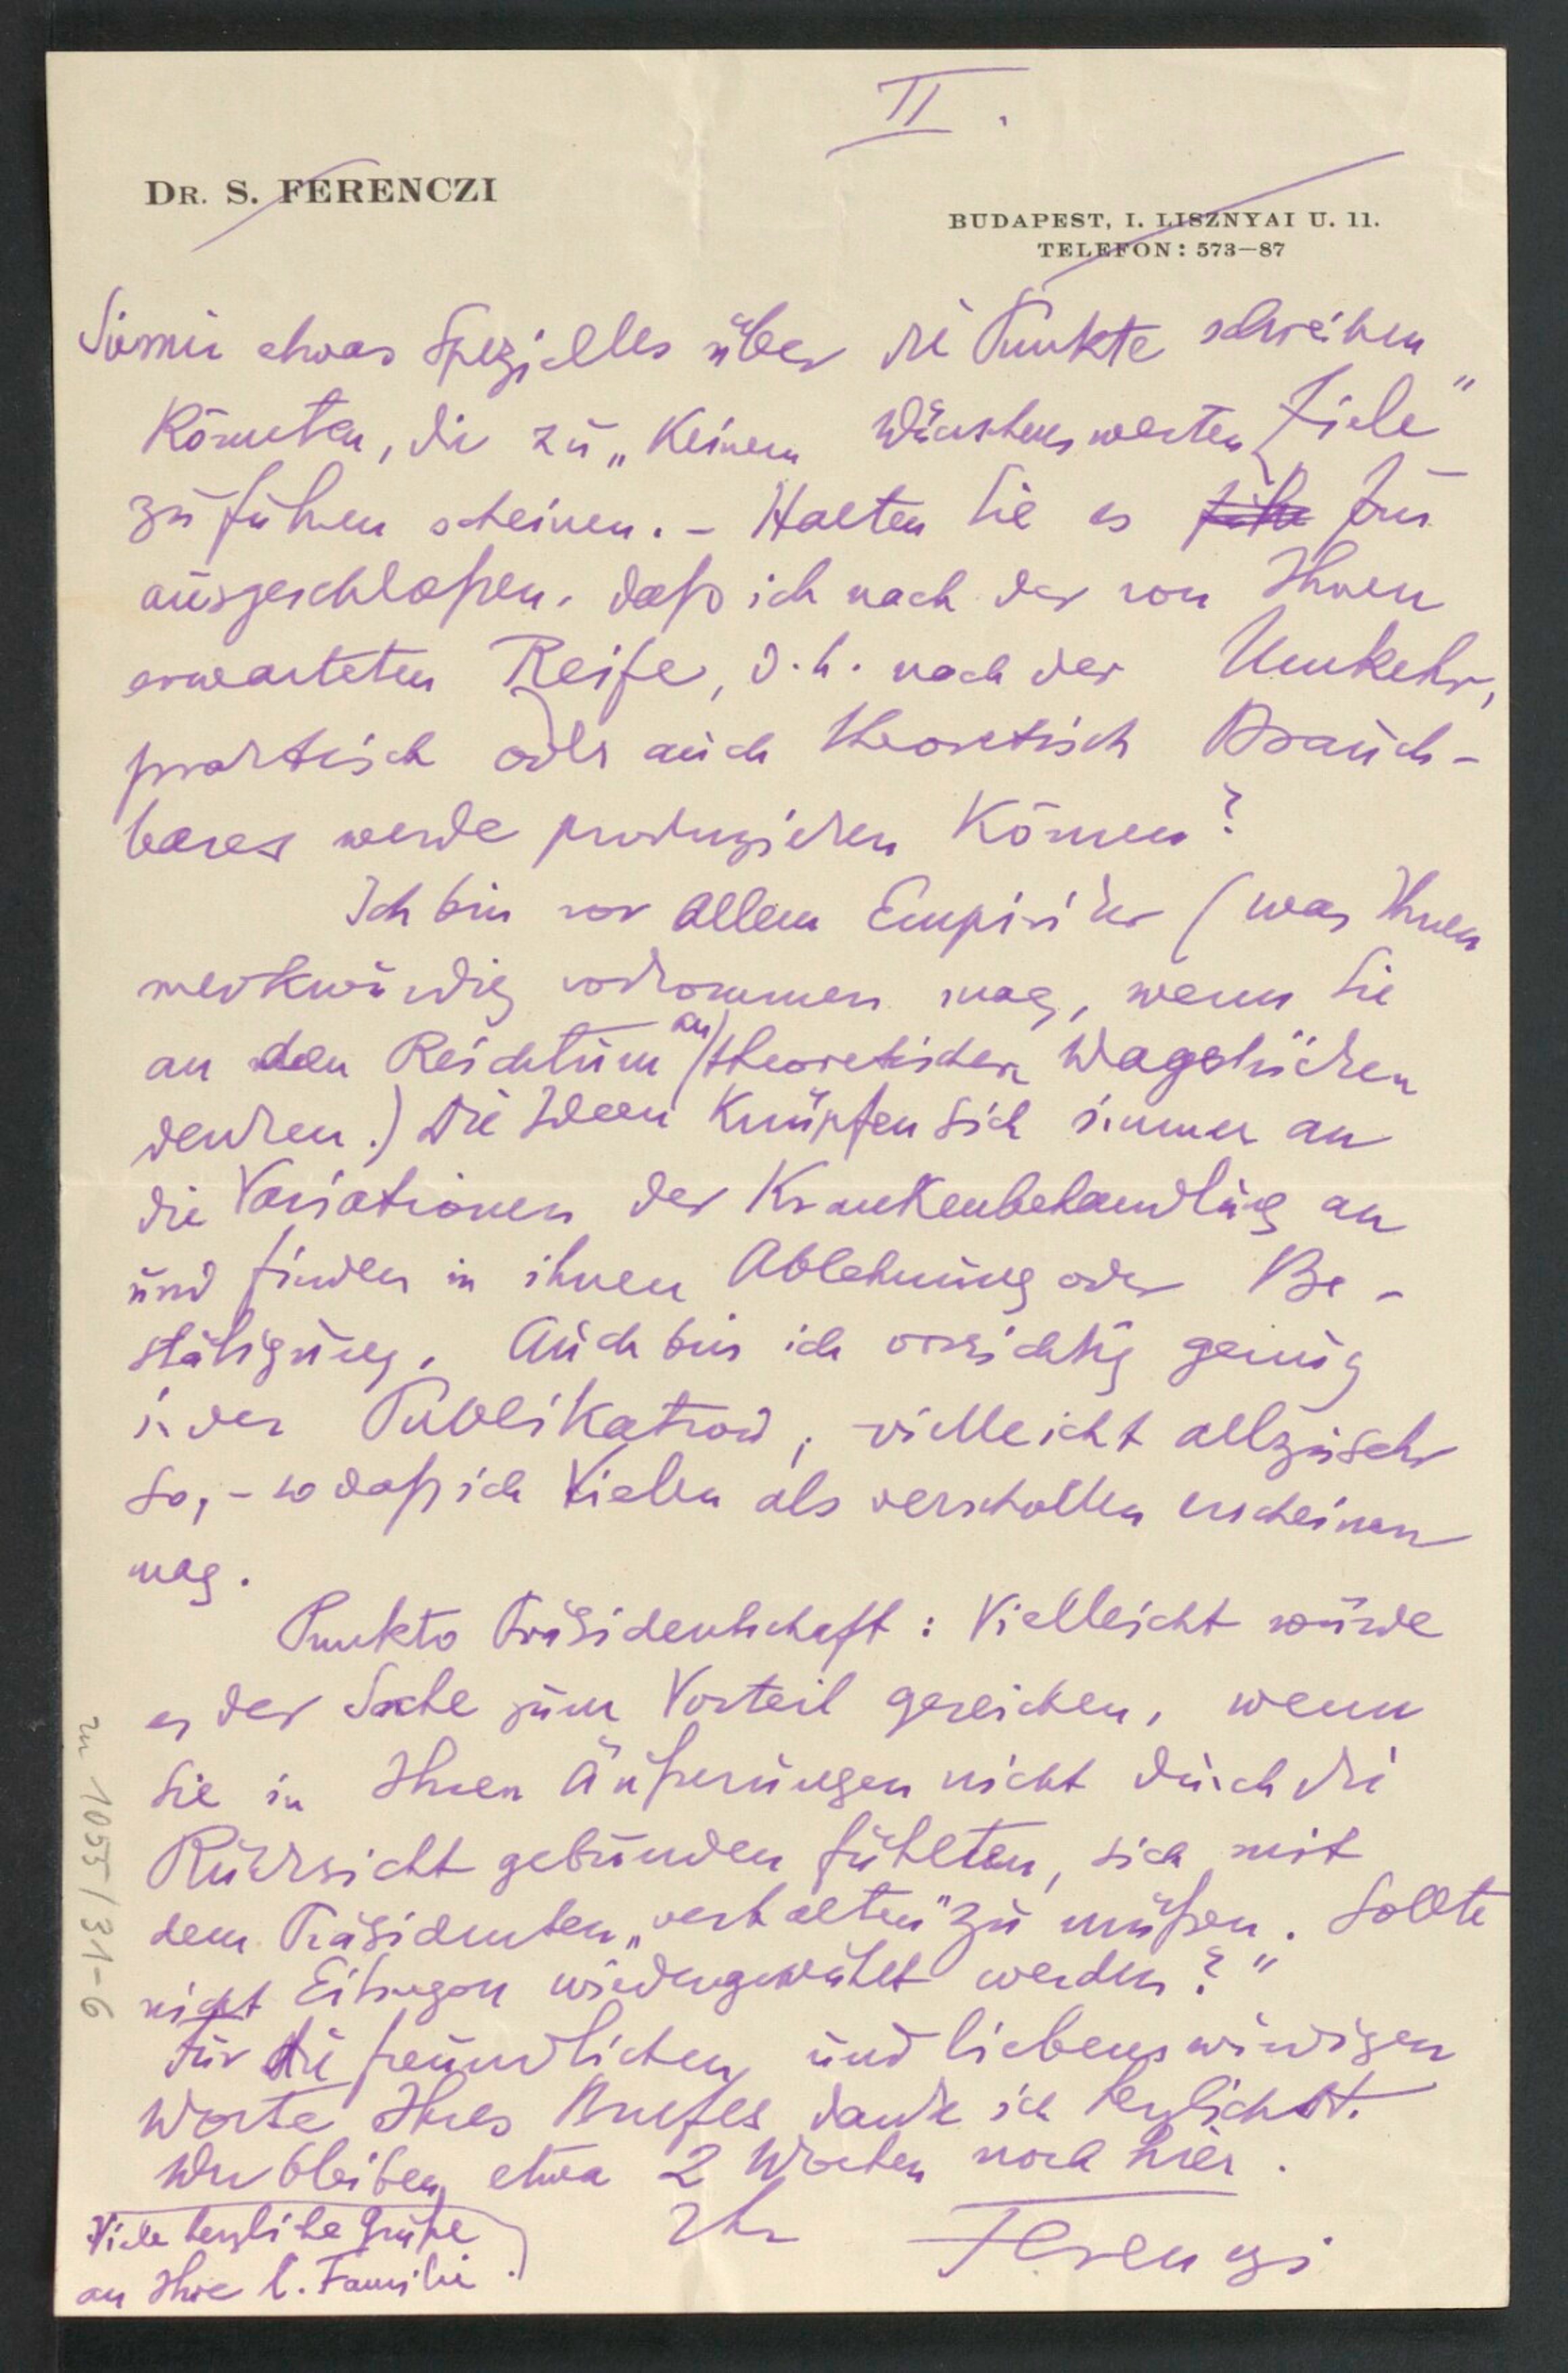 II.
DR. S. FERENCZI
BUDAPEST, I. LISZNYAI U. 11.
TELEFON: 573—87
Sie mir etwas Spezielles über die Punkte schreiben
könnten, die zu „keinem wünschenswerten Ziele"
zu führen scheinen. – Halten Sie es für
ausgeschloßen, daß ich nach der von Ihnen
erwarteten Reife, d.h. nach der Umkehr,
praktisch oder auch theoretisch Brauch-
bares werde produzieren können?
Ich bin vor allem Empiriker (was Ihnen
merkwürdig vorkommen mag, wenn Sie
an den Reichtum an theoretischen Wagstücken
denken.) Die Ideen knüpfen sich immer an
die Variationen der Krankenbehandlung an
und finden in ihnen Ablehnung oder Be-
stätigung. Auch bin ich vorsichtig genug
in der Publikation, vielleicht allzusehr
so, – so daß ich Vielen als verschollen erscheinen
mag.
Punkto Präsidentschaft: Vielleicht würde
es der Sache zum Vorteil gereichen, wenn
Sie in Ihren Äußerungen nicht durch die
Rücksicht gebunden fühlten, sich mit
dem Präsidenten „verhalten" zu müßen. Sollte
nicht Eitingon wiedergewählt werden?"
Für die freundlichen und liebenswürdigen
Worte Ihres Briefes danke ich herzlichst.
Wir bleiben etwa 2 Wochen noch hier.
Ihr Ferenczi
Viele herzliche Grüße
an Ihre l. Familie.
zu 1055/31-6